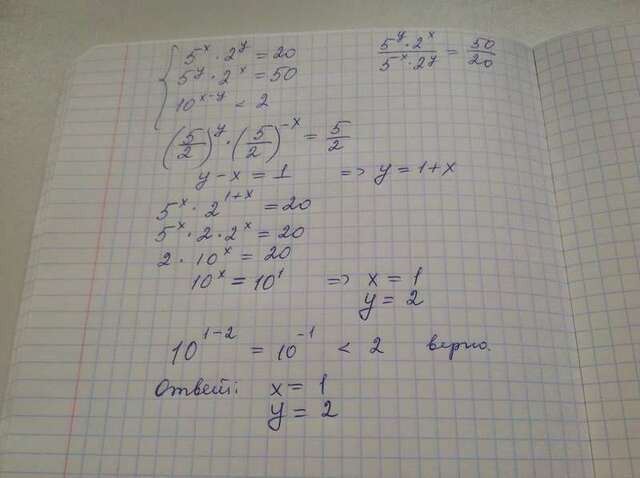 5^x · 2^y = 20
5^y · 2^x = 50
10^(x-y) < 2
(5^y · 2^x)/(5^x · 2^y) = 50/20
(5/2)^y · (5/2)^(-x) = 5/2
y - x = 1 => y = 1+x
5^x · 2^(1+x) = 20
5^x · 2 · 2^x = 20
2 · 10^x = 20
10^x = 10^1 => x = 1
y = 2
10^(1-2) = 10^(-1) < 2 верно.
Ответ: x = 1
y = 2